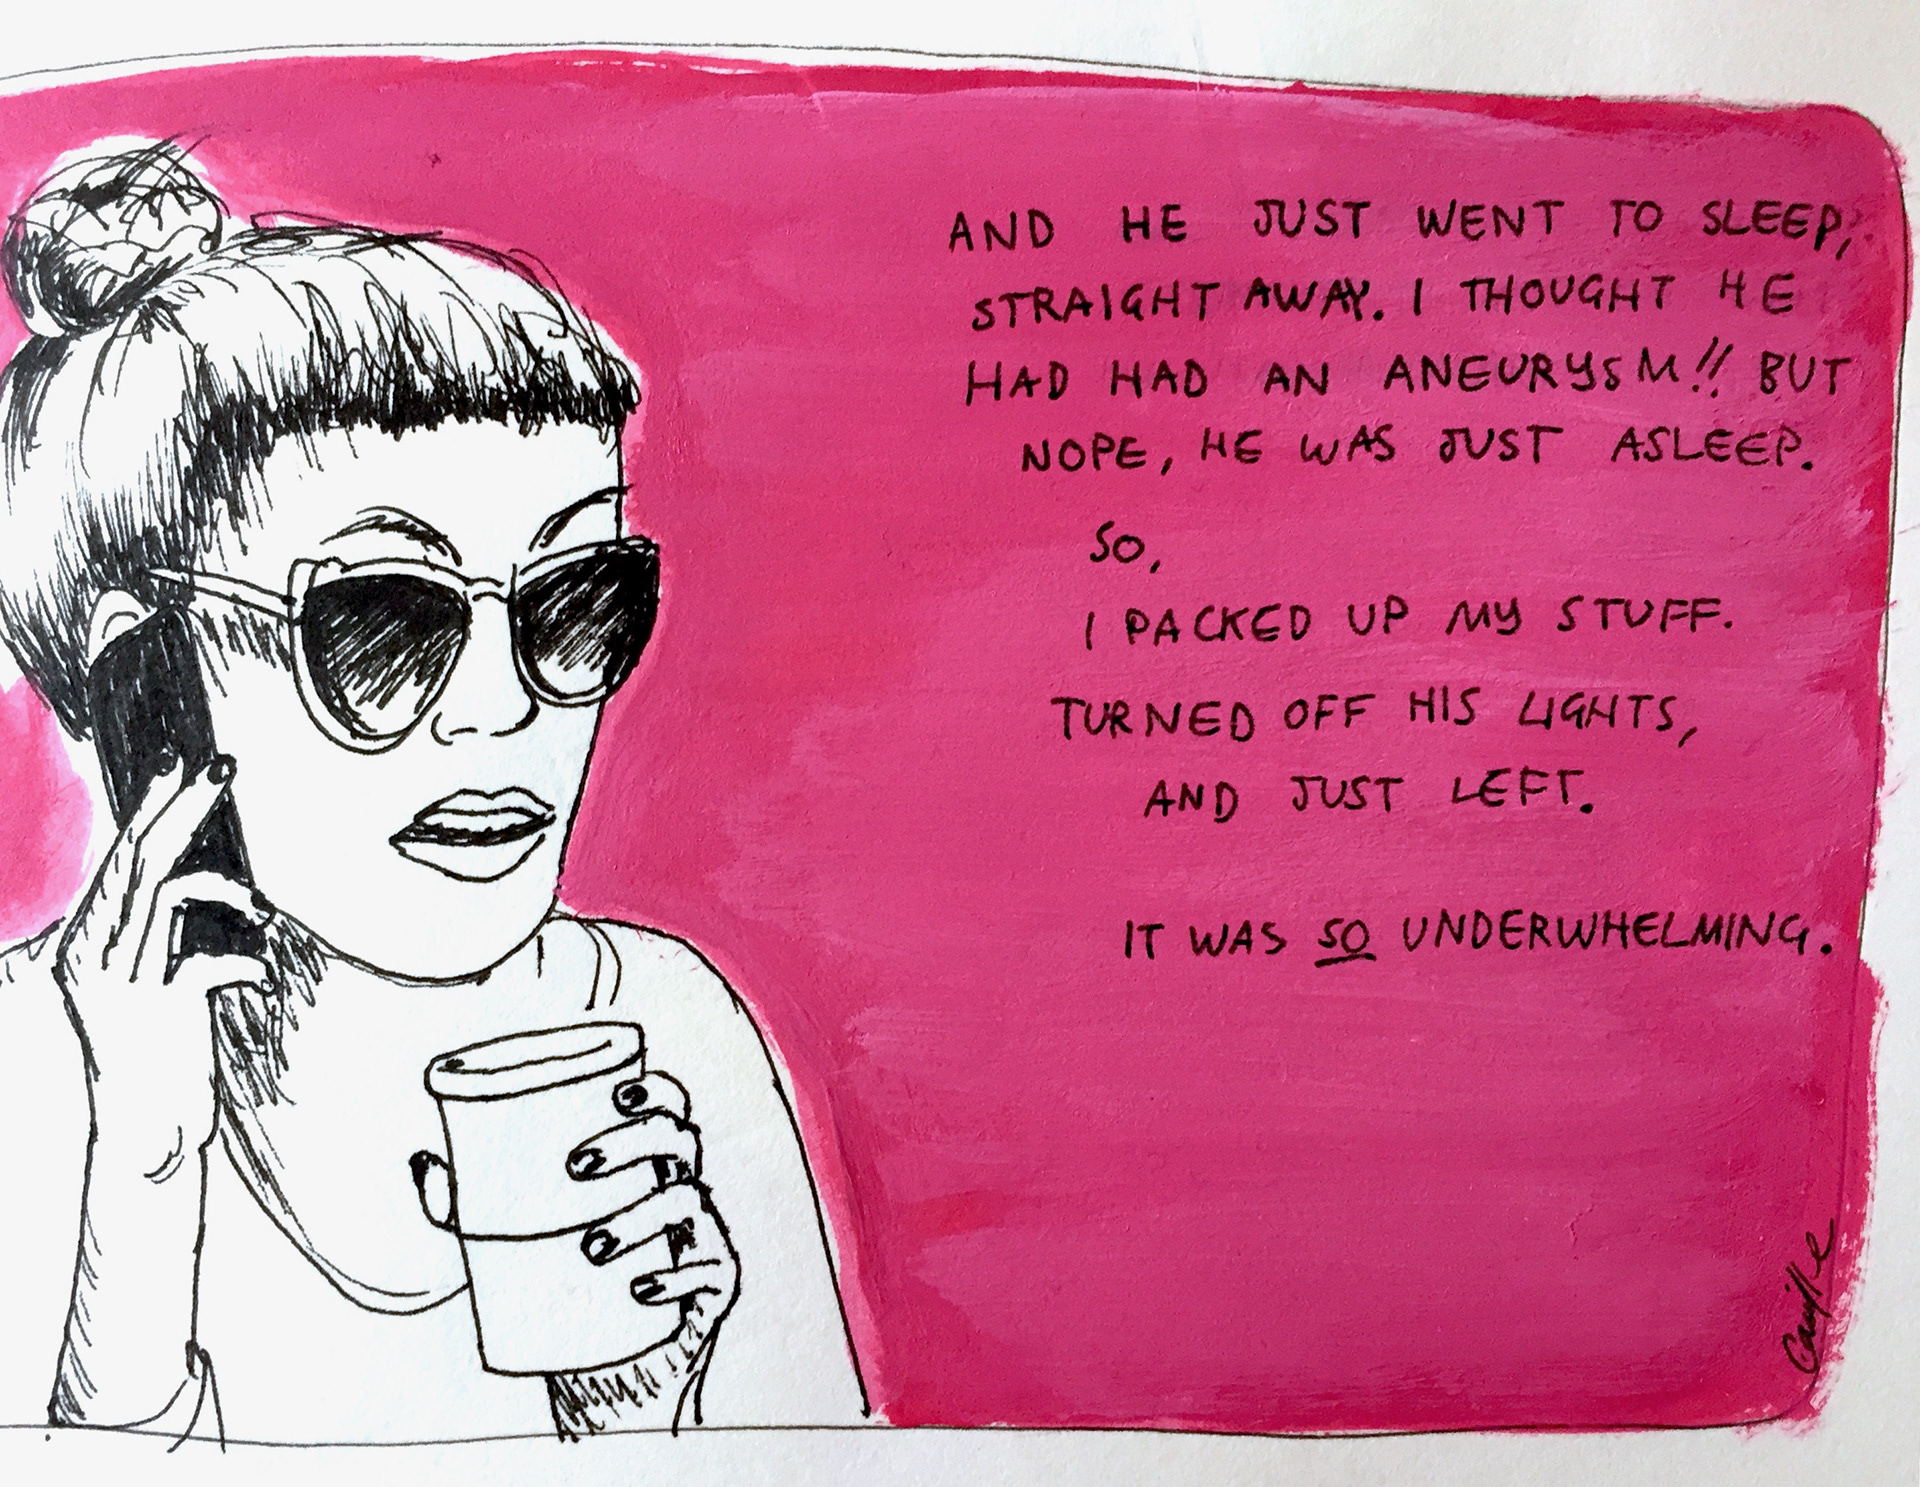 AND HE JUST WENT TO SLEEP,
STRAIGHT AWAY. I THOUGHT HE
HAD HAD AN ANEURYSM!! BUT
NOPE, HE WAS JUST ASLEEP.
SO,
I PACKED UP MY STUFF.
TURNED OFF HIS LIGHTS,
AND JUST LEFT.
IT WAS SO UNDERWHELMING.